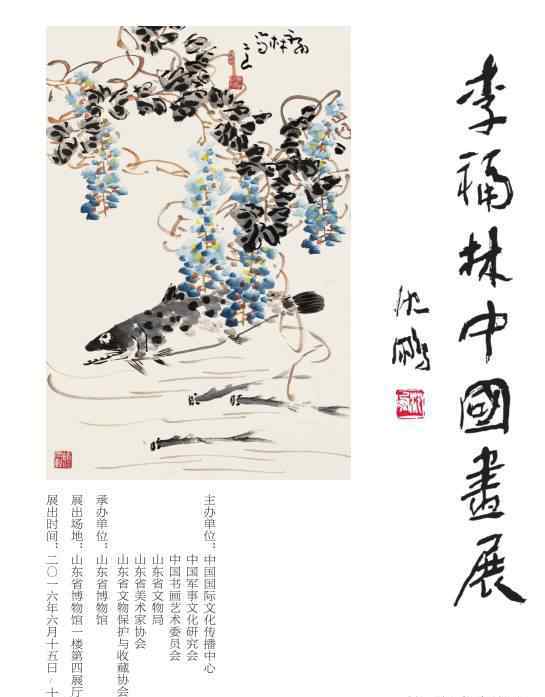 李福林中國畫展
沈鹏
主办单位：中国国际文化传播中心
中国军事文化研究会
中国书画艺术委员会
山东省文物局
山东省美术家协会
山东省文物保护与收藏协会
承办单位：山东省博物馆
展出场地：山东省博物馆一楼第四展厅
展出时间：二〇一六年六月十五日-十